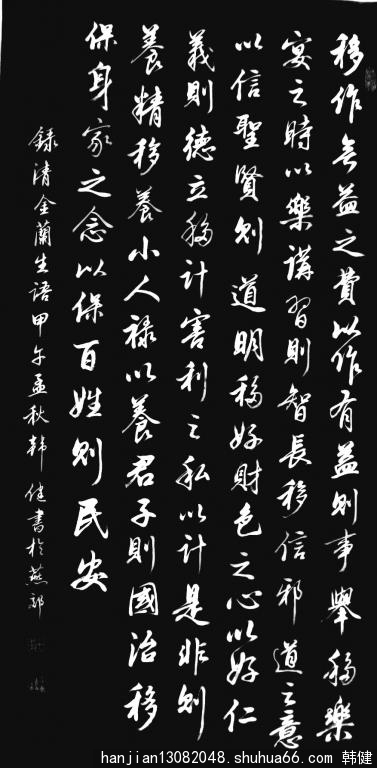 移作無益之費以作有益則事舉移樂
宴之時以樂講習則智長移信邪道之意
以信聖賢則道明移好財色之心以好仁
義則德立移計害利之私以計是非則
養精移養小人祿以養君子則國治移
保身家之念以保百姓則民安
錄清金蘭生語甲午孟秋韩健書於燕郊
hanjian13082048.shuhua66.com 韩健